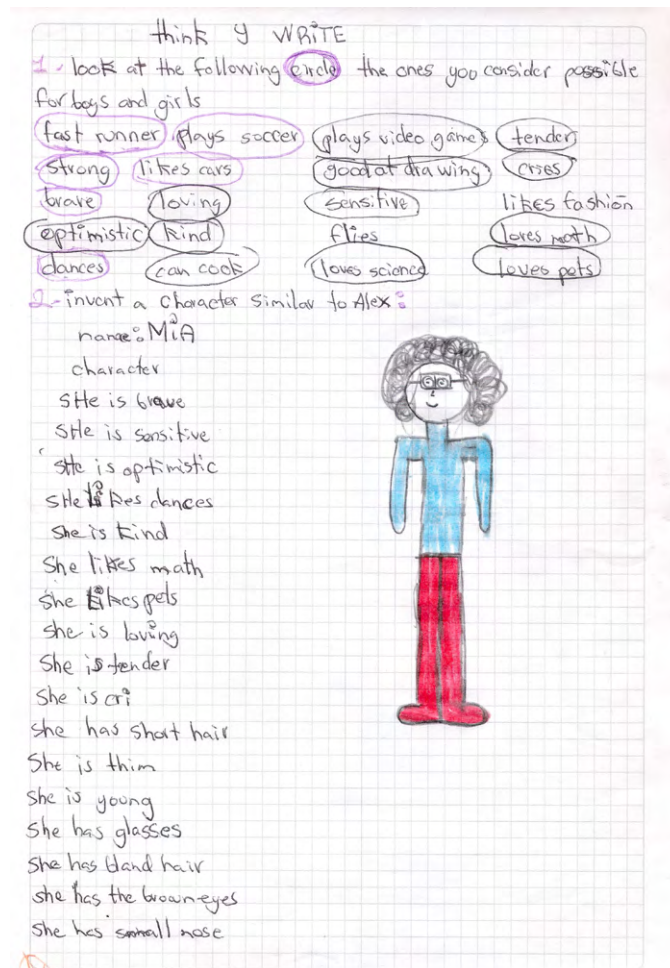 think y WRiTE
1- look at the following circle the ones you consider possible
for boys and girls
fast runner plays soccer plays video games tender
strong likes cars good at drawing cries
brave loving sensitive likes fashion
optimistic kind flies loves math
dances can cook loves science loves pets
2- invent a character similar to Alex:
name: MiA
character
SHe is brave
SHe is sensitive
SHe is optimistic
SHe likes dances
She is kind
She likes math
She likes pets
She is loving
She is tender
She is cri
She has short hair
She is thim
She is young
She has glasses
She has bland hair
She has the brown eyes
She has small nose